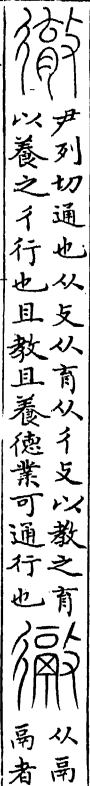 徹
尹列切通也从攴从育从彳攴以教之育
以養之彳行也且教且養德業可通行也
从鬲
鬲者